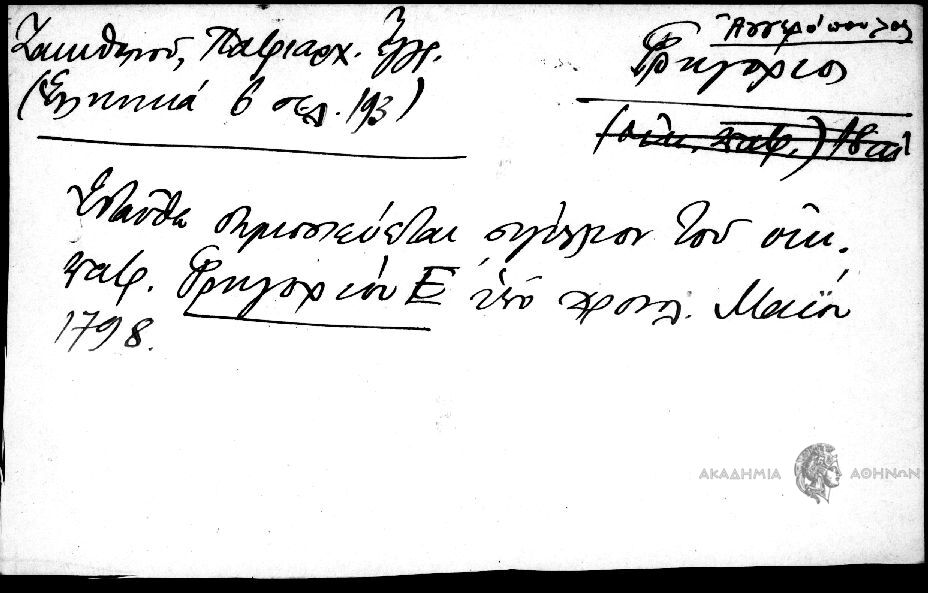 Ζακυθηνού, Πατριαρχ. Εγγρ.
(Ελληνικά 6 σελ. 193)
Αγγελόπουλος
Γρηγόριος
(οικ. πατρ.)
Ενταύθα δημοσιεύεται σιγίλλιον του οικ.
πατρ. Γρηγορίου Ε υπό χρονολ. Μαΐου
1798.
ΑΚΑΔΗΜΙΑ ΑΘΗΝΩΝ